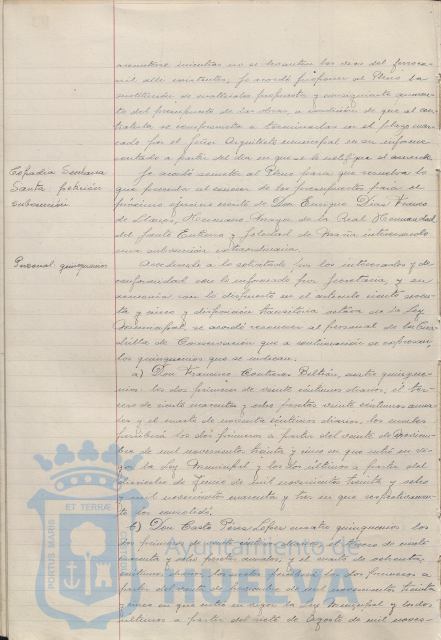 acometerse mientras no se levanten las vías del ferroca-
rril allí existentes, se acordó proponer al Pleno la
sustitución de materiales propuesta y consiguiente aumen-
to del presupuesto de las obras, a condición de que el con-
tratista se comprometa a terminarlas en el plazo mar-
cado por el Señor Arquitecto municipal en su informe
contado a partir del día en que se le notifique el acuerdo.
Cofradía Semana
Santa petición
subvención
Se acordó someter al Pleno para que resuelva lo
que proceda al conocer de los presupuestos para el
próximo ejercicio escrito de Don Enrique Díaz Franco
de Llanos, Hermano Mayor de la Real Hermandad
del Santo Entierro y Soledad de María interesando
una subvención extraordinaria.
Personal quinquenios
Accediendo a lo solicitado por los interesados y de
conformidad con lo informado por Secretaría, y en
armonía con lo dispuesto en el artículo ciento
y cinco y disposición transitoria octava de la Ley
Municipal, se acordó reconocer al personal de la
de Conservación que a continuación se expresan,
los quinquenios que se indican.
a) Don Francisco Contreras Beltrán, cuatro quinque-
nios: los dos primeros de veinte céntimos diarios, el ter-
cero de ciento cuarenta y ocho pesetas veinte céntimos anua-
les y el cuarto de noventa céntimos diarios, los cuales
percibirá los dos primeros a partir del veinte de noviem-
bre de mil novecientos treinta y cinco en que entró en vi-
gor la Ley Municipal y los dos últimos a partir del
de Junio de mil novecientos treinta y ocho
y mil novecientos cuarenta y tres en que respectivamen-
te los cumplió.
b) Don Casto Pérez López cuatro quinquenios: los
dos primeros de veinte céntimos diarios, el tercero de ciento
cuarenta y ocho pesetas anuales, y el cuarto de ochenta
céntimos diarios, los cuales percibirá los dos primeros a
partir del veinte de noviembre de mil novecientos treinta
y cinco en que entró en vigor la Ley Municipal y los dos
últimos a partir del siete de Agosto de mil nove-
PORTUS MARIS
ET TERRAE
Ayuntamiento de
HUELVA